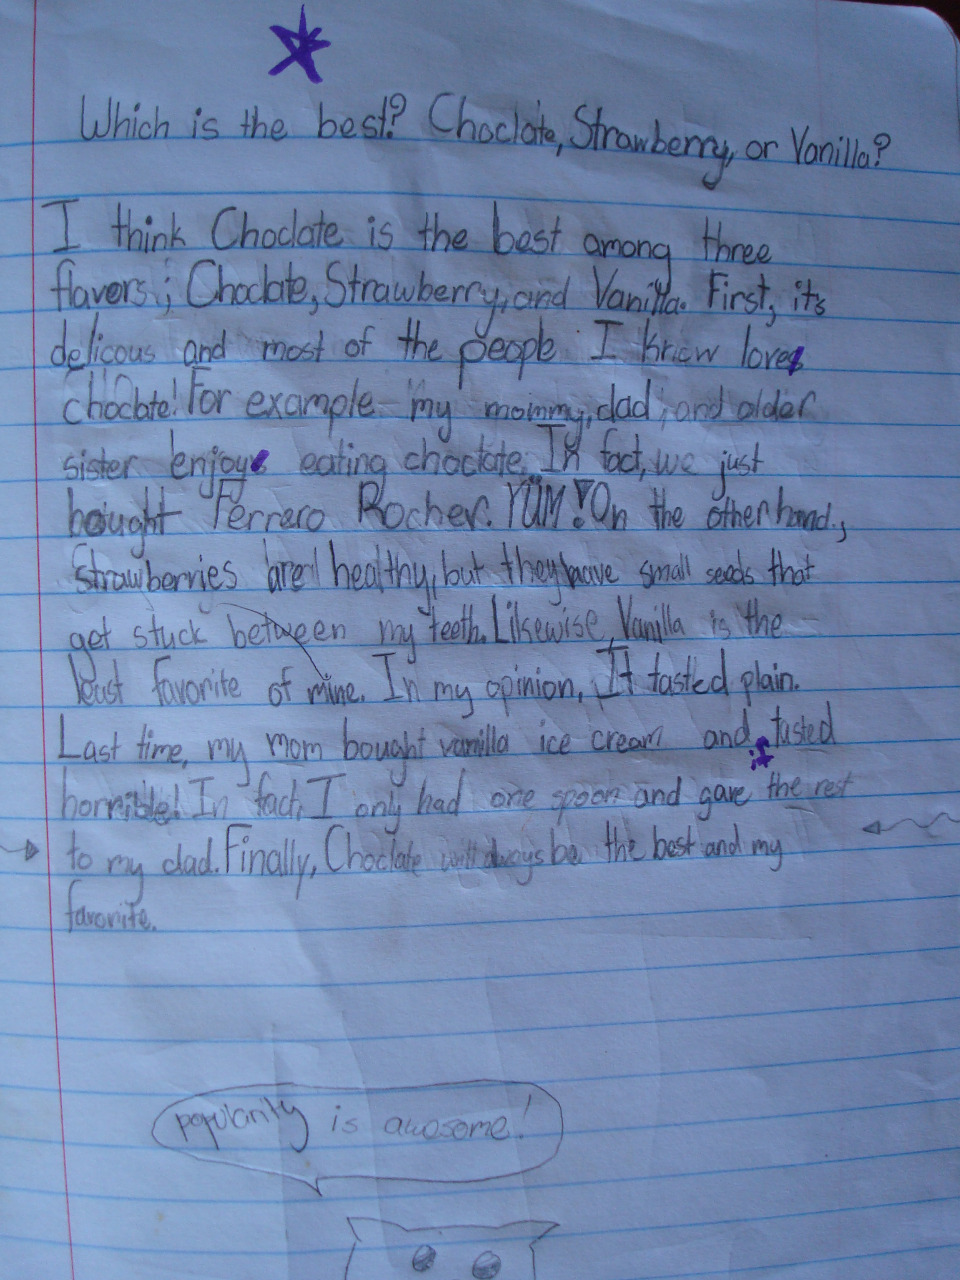 Which is the best? Choclate, Strawberry, or Vanilla?
I think Choclate is the best among three
flavors; Choclate, Strawberry, and Vanilla. First, its
delicous and most of the people I know love
choclate! For example my mommy, dad, and older
sister enjoy eating choclate. In fact, we just
bought Ferrero Rocher. YUM! On the other hand,
Strawberries are healthy, but they have small seeds that
get stuck between my teeth. Likewise, Vanilla is the
least favorite of mine. In my opinion, It tasted plain.
Last time, my mom bought vanilla ice cream and it tasted
horrible! In fact, I only had one spoon and gave the rest
to my dad. Finally, Choclate will always be the best and my
favorite.
popularity is awesome!